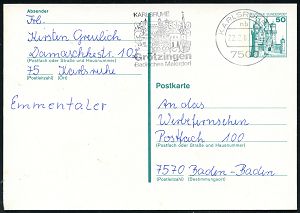 Absender
Frl.
Kirsten Greulich
Damaschkestr. 102
(Postfach oder Straße und Hausnummer)
75 Karlsruhe
(Postleitzahl) (Ort)
Emmentaler
KARLSRUHE
Grötzingen
Badisches Malerdorf
KARLSRUHE
7500
DEUTSCHE BUNDESPOST
50
Postkarte
An das
Werbefernsehen
Postfach 100
(Postfach oder Straße und Hausnummer)
7570 Baden-Baden
(Postleitzahl) (Bestimmungsort)